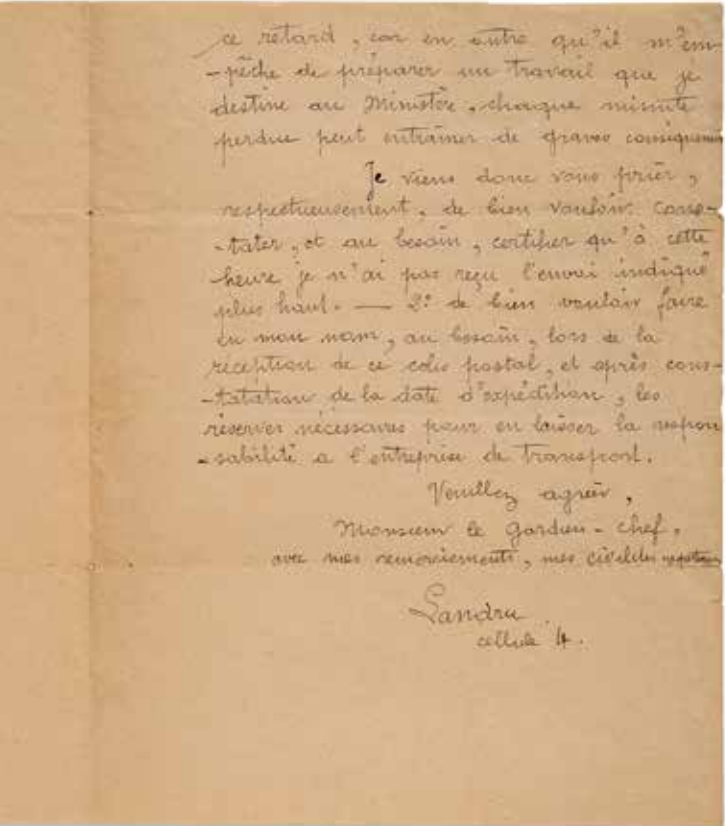 ce retard, car en outre qu'il m'em-
-pêche de préparer un travail que je
destine au Ministère, chaque minute
perdue peut entraîner de graves conséquences
Je viens donc vous prier,
respectueusement, de bien vouloir cons-
-tater, et au besoin, certifier qu'à cette
heure je n'ai pas reçu l'envoi indiqué
plus haut. — 2º de bien vouloir faire
en mon nom, au besoin, lors de la
réception de ce colis postal, et après cons-
-tatation de la date d'expédition, les
réserves nécessaires pour en laisser la respon
-sabilité a l'entreprise de transport.
Veuillez agréer,
Monsieur le Gardien-chef,
avec mes remerciements, mes civilités
Landru
cellule 4.